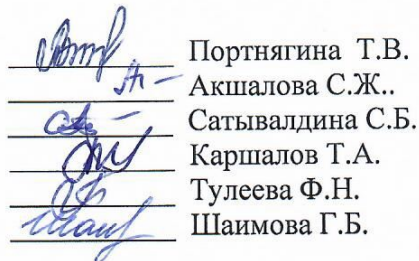 Портнягина Т.В.
Акшалова С.Ж..
Сатывалдина С.Б.
Каршалов Т.А.
Тулеева Ф.Н.
Шаимова Г.Б.